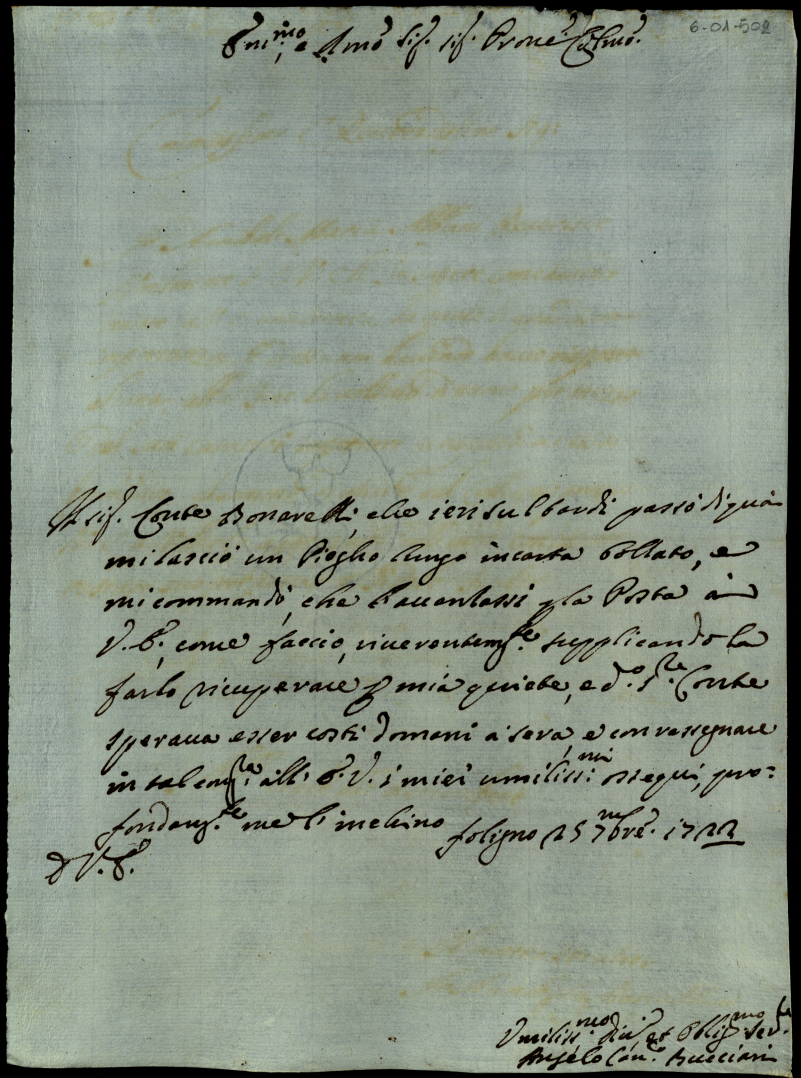 6-01-502
Em.mo, e Rmo Sig. Sig. Prone Colmo.
Il Sig. Conte Bonarelli, che ieri sul tardi passò di quà
mi lasciò un Pieglio lungo in carta bollata, e
mi commandò, che l'accentassi p la Posta à
V. E., come faccio, riverentem.te supplicandola
farlo ricuperare p mia quiete, e d.o S.re Conte
sperava esser costì domani à sera, e con rassegnare
in tal cong.ra all' E. V. i miei umiliss.mi ossequi, pro=
fondam.te me l'inchino
Foligno 25 7bre. 1722
D V. E.
Umiliss.mo Div. et Oblig.mo Ser.re
Angelo Can.co Bucciari